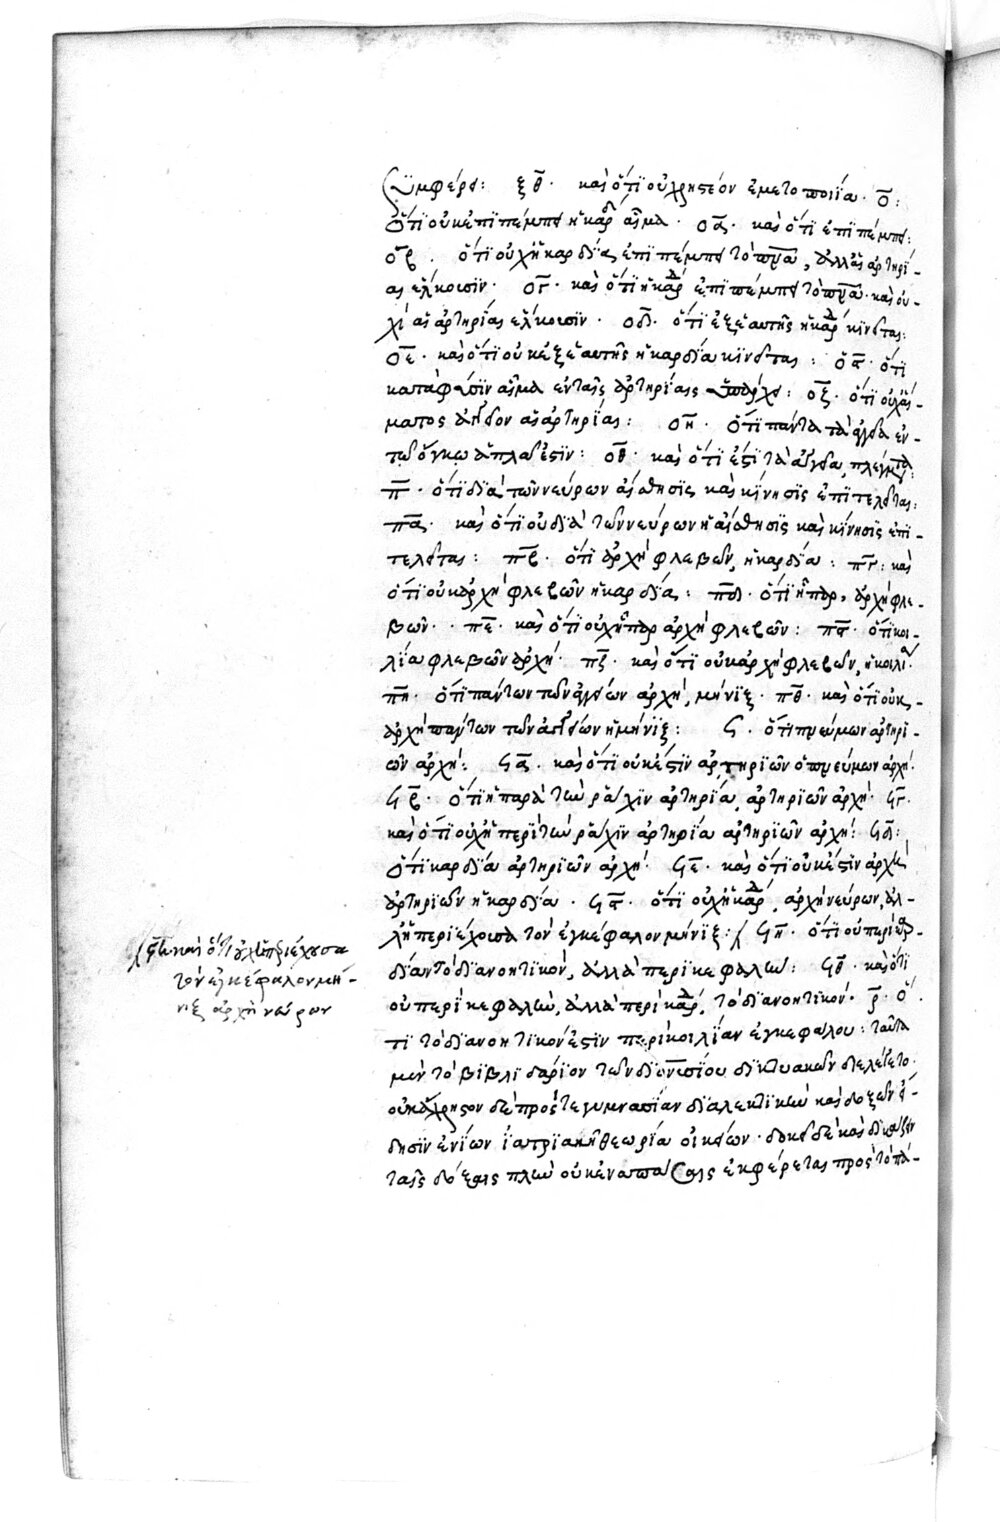 συμφέρει: ξθ· καὶ ὅτι οὐ χρηστέον ἐμετοποιΐα· ο:
ὅτι οὐκ ἐπιπέμπει ἡ καρδ αἷμα· οα· καὶ ὅτι ἐπιπέμπει:
οβ. ὅτι οὐχ ἡ καρδία ἐπιπέμπει τὸ πνα, ἀλλ' αἱ ἀρτηρί-
αι ἕλκουσιν· ογ· καὶ ὅτι ἡ καρδ ἐπιπέμπει τὸ πνα· καὶ οὐ-
χὶ αἱ ἀρτηρίαι ἕλκουσιν· οδ· ὅτι ἐξ ἑαυτῆς ἡ καρδ κινεῖται:
οε· καὶ ὅτι οὐκ ἐξ ἑαυτῆς ἡ καρδία κινεῖται: ος· ὅτι
κατὰ φύσιν αἷμα ἐν ταῖς ἀρτηρίαις ὑπάρχει: οζ· ὅτι οὐχ αἵ-
ματος ἀγγεῖον αἱ ἀρτηρίαι: οη· ὅτι πάντα τὰ ἀγγεῖα ἐν
τῶ ὄγκω ἁπλᾶ ἐστιν: οθ· καὶ ὅτι ἐστὶ τὰ ἀγγεῖα πλέγματα:
π· ὅτι διὰ τῶν νεύρων αἴσθησις καὶ κίνησις ἐπιτελεῖται:
πα· καὶ ὅτι οὐ διὰ τῶν νεύρων ἡ αἴσθησις καὶ κίνησις ἐπι-
τελεῖται: πβ· ὅτι ἀρχὴ φλεβῶν, ἡ καρδία: πγ: καὶ
ὅτι οὐκ ἀρχὴ φλεβῶν ἡ καρδία: πδ· ὅτι ἧπαρ, ἀρχὴ φλε-
βῶν· πε· καὶ ὅτι οὐχ ἧπαρ ἀρχὴ φλεβῶν: πς· ὅτι κοι-
λία φλεβῶν ἀρχή· πζ· καὶ ὅτι οὐκ ἀρχὴ φλεβῶν, ἡ κοιλία·
πη· ὅτι πάντων τῶν ἀγγείων ἀρχή, μῆνιξ· πθ· καὶ ὅτι οὐκ-
ἀρχὴ πάντων τῶν ἀγγείων ἡ μῆνιξ: ϟ· ὅτι πνεύμων ἀρτηρι-
ῶν ἀρχή: ϟα· καὶ ὅτι οὐκ ἔστιν ἀρτηριῶν ὁ πνεύμων ἀρχή·
ϟβ· ὅτι ἡ παρὰ τὴν ῥάχιν ἀρτηρία, ἀρτηριῶν ἀρχή· ϟγ·
καὶ ὅτι οὐχ ἡ περὶ τὴν ῥάχιν ἀρτηρία ἀρτηριῶν ἀρχή: ϟδ:
ὅτι καρδία ἀρτηριῶν ἀρχή· ϟε· καὶ ὅτι οὐκ ἔστιν ἀρχὴ
ἀρτηριῶν ἡ καρδία· ϟς· ὅτι οὐχ ἡ καρδ, ἀρχὴ νεύρων, ἀλ-
λ' ἡ περιέχουσα τὸν ἐγκέφαλον μῆνιξ: ϟη· ὅτι οὐ περὶ καρ-
δίαν τὸ διανοητικόν, ἀλλὰ περὶ κεφαλήν: ϟθ· καὶ ὅτι
οὐ περὶ κεφαλήν, ἀλλὰ περὶ καρδ, τὸ διανοητικόν· ρ· ὅ-
τι τὸ διανοητικόν ἐστιν περὶ κοιλίαν ἐγκεφάλου: ταῦτα
μὲν τὸ βιβλιδάριον τῶν διονυσίου δικτυακῶν διελέγετο·
οὐκ ἄχρηστον δὲ πρός τε γυμνασίαν διαλεκτικὴν καὶ δοξῶν εἴ-
δησιν ἐνίων ἰατρικῆ θεωρία οἰκείων· δοκεῖ δὲ καὶ
ταῖς δόξαις πλὴν οὐκ ἐν ἁπάσαις ἐκφέρεται πρὸς τὸ πλ-
ϟζ καὶ ὅτι οὐχ ἡ περιέχουσα
τὸν ἐγκέφαλον μῆ-
νιξ ἀρχὴ νεύρων